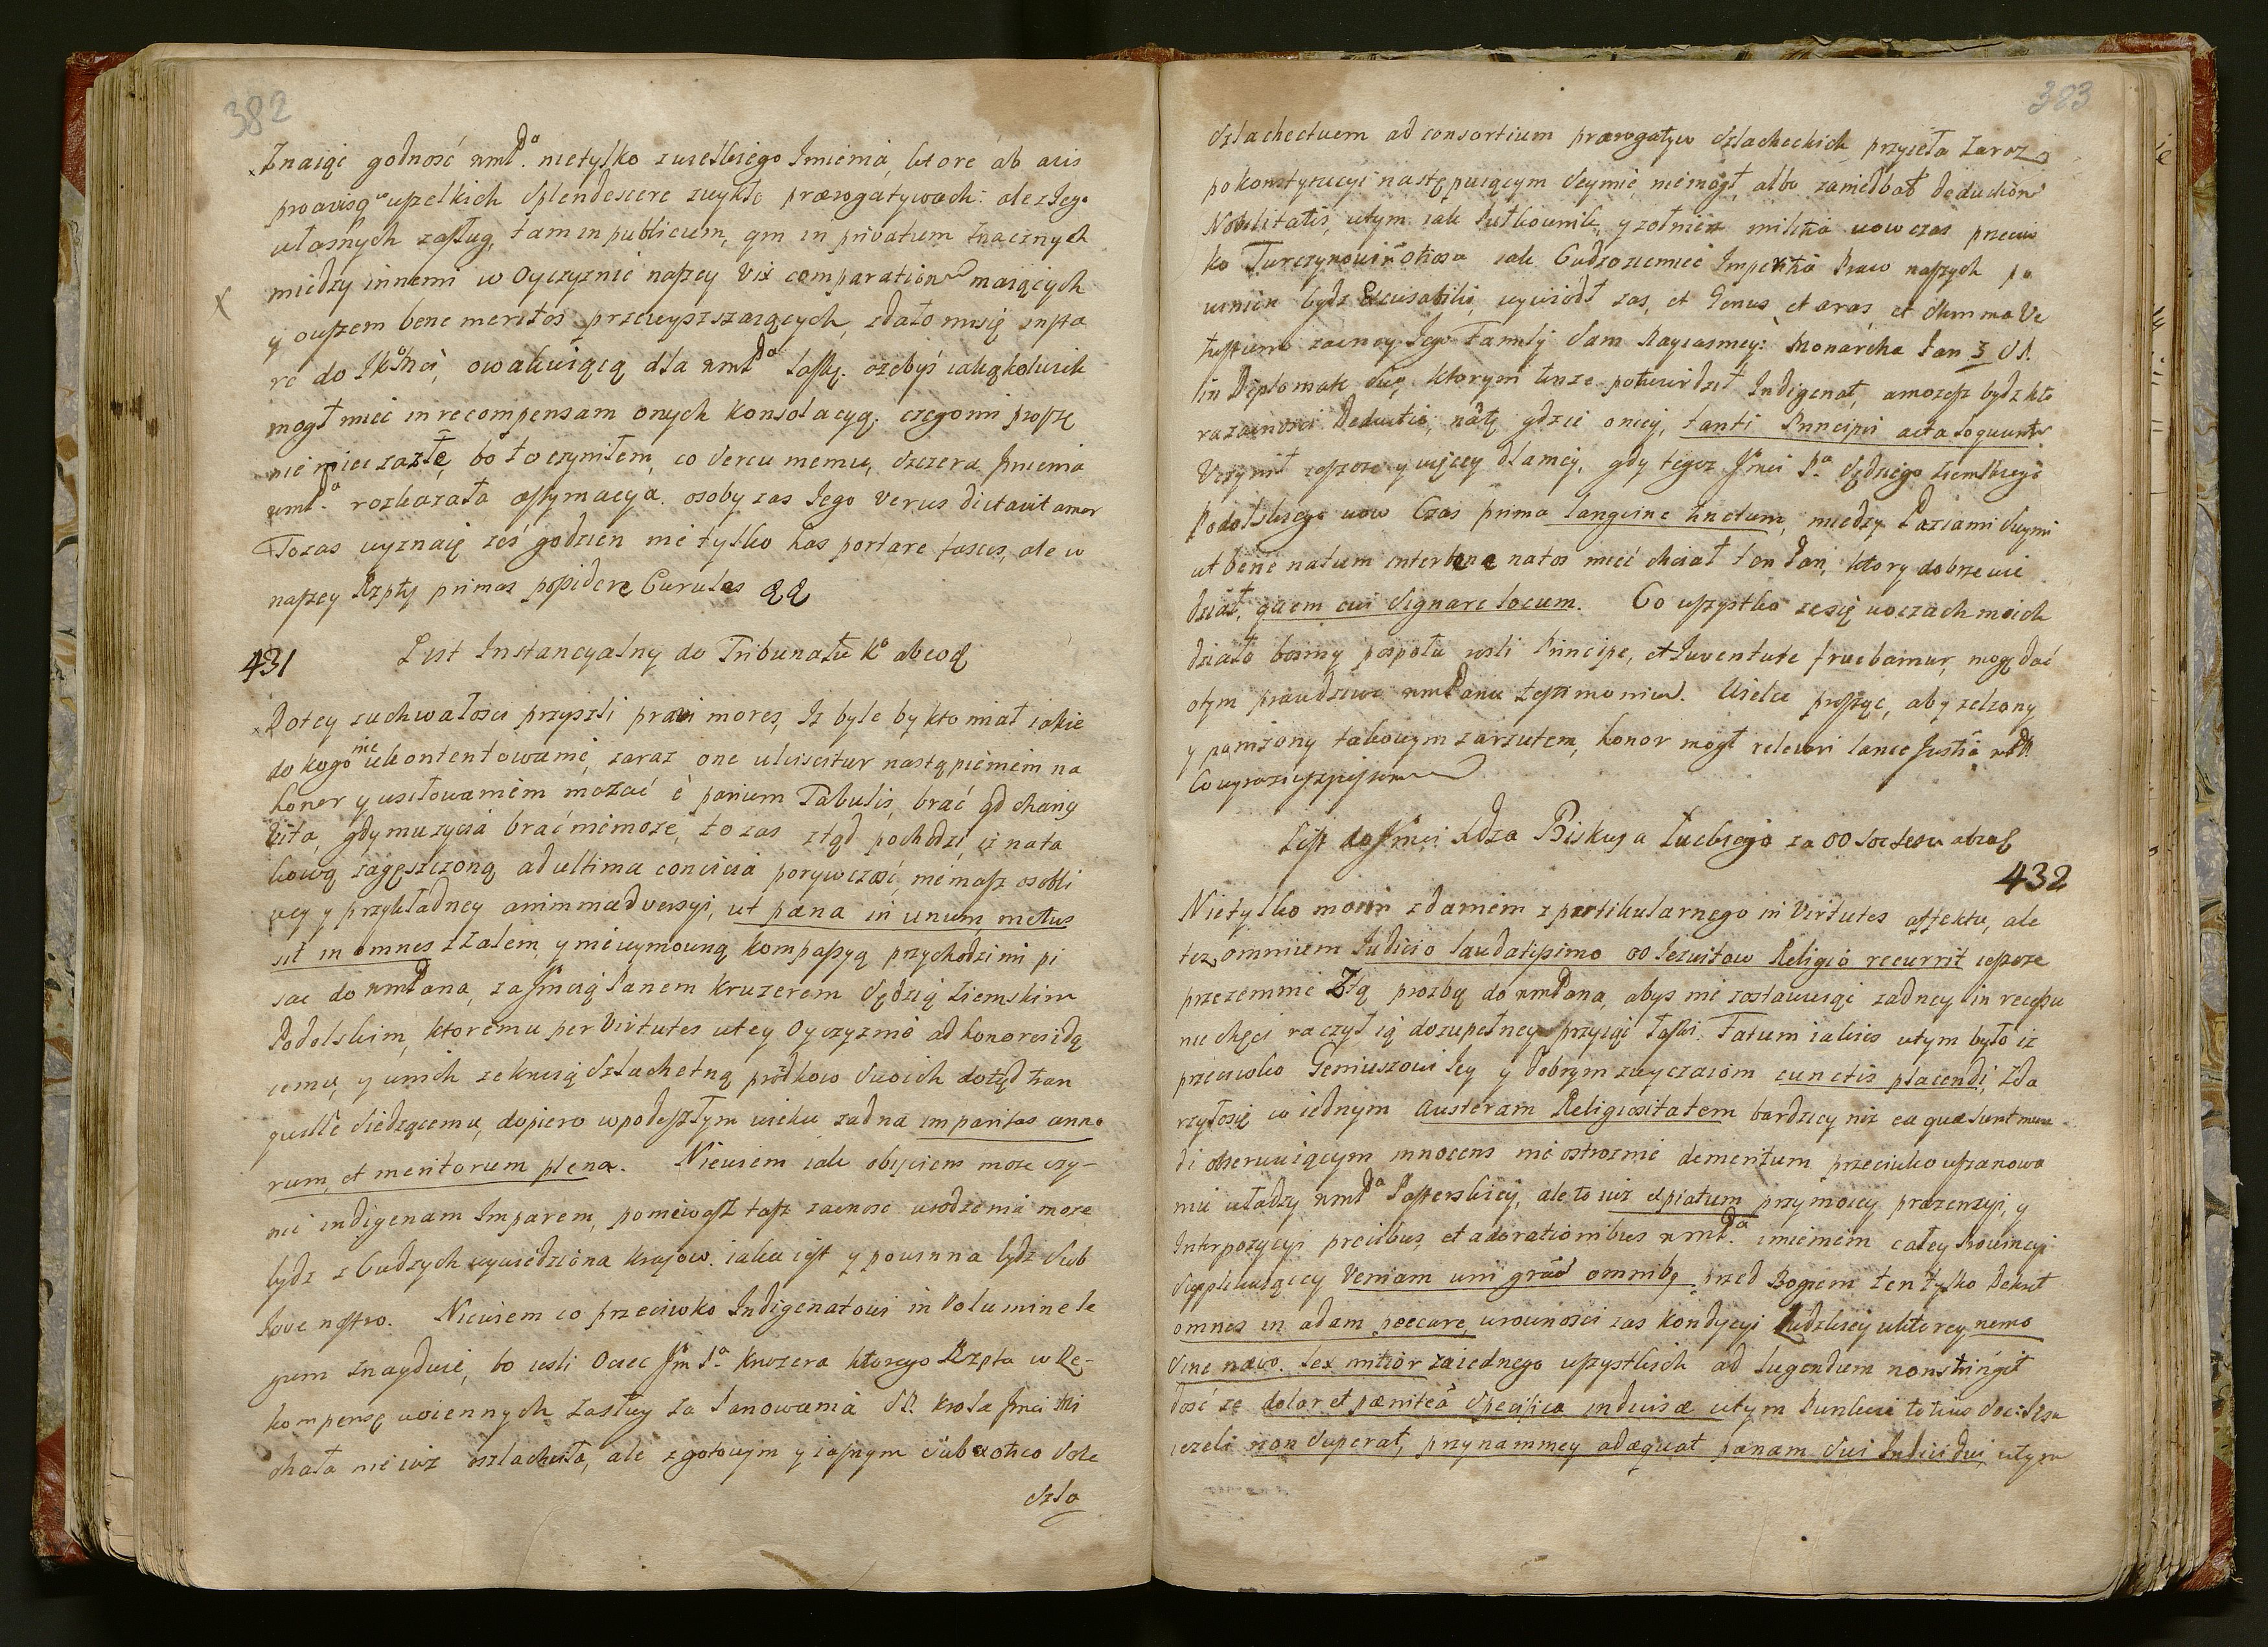 382
Znaiąc godnosć wmP.ᵃ nietylko zwielkiego Imienia, ktore ab avis
proavisqᵘᵉ wszelkich Splendescere zwykło prærogatywach: ale z Iego
własnych zasług, tam in publicum, qm in privatum znacznych
między innemi w Oyczyznie naszey vix comparationem maiących
y owszem bene meritos przewyszszaiących, zdało misię insta
re do IKmci, owakuiącą dla wmPᵃ łaskę. ażebyś iakąkolwiek
mogł mieć in recompensam onych konsolacyą. czego mi proszę
nie miec zazłe, bo to czyniłem, co Sercu memu, szczera Imienia
wmP.ᵃ rozkazała estymacya. osoby zas Iego verus dictavit amor
Tozas wyznaię żeś godzien nie tylko has portare fasces, ale w
naszey Rzpty primas possidere Curules
431 List Instancyalny do Tribunału Kᵒ
Dotey zuchwałosci przyszli pravi mores, Iz byle by kto miał iakie
do kogo nieukontentowanie, zaraz one ulciscitur nastąpieniem na
honor y usiłowaniem mazać è parium Tabulis, brać qd charius
vita, gdy mu zycia brać niemoże, to zas ztąd pochodzi, iz nata
kową zagęszczoną ad ultima convicia porywczość, niemasz osobli
wey y przykładney animmadversyi, ut pæna in unum, metus
sit in omnes z Zalem, y niewymowną kompassyą przychodzi mi pi
sac do wmPana, za Jmcią Panem Kruzerem Sędzią Ziemskim
Podolskim, ktoremu per virtutes w tey Oyczyznie ad honores idą
cemu, y wnich ze krwią Szlachetną przodkow Swoich dotąd tran
quille siedzącemu, dopiero w podeszłym wieku zadna imparitas anno
rum, et meritorum plena. Niewiem iak obiiciens moze czy-
nić indigenam Imparem, poniewasz tasz zacnosc urodzenia może
bydz z Cudzych wywiedziona kraiow. iaka iest y powinna bydz Sub
Iove nostro. Niewiem co przeciwko Indigenatowi in Volumine le
gum znayduie, bo iesli Ociec Jm Pᵃ Kruzera ktorego Rzpta w Re-
kompensę woiennych zasług za Panowania SP. Krola Jmci Mi
chała nie iuz oszlachciła, ale z gotowym y iasnym
Szla
383
Szlachectwem ad consortium prærogatyw Szlacheckich przyięła zaraz
po konstytucyi następuiącym Seymie niemogł, albo zaniedbał deductionem
Nobilitatis, wtym iak Pułkownik, y zołnierz militia wowczas przeciw
ko Turczynowi otiosa iak Cudzoziemiec Imperitia Praw naszych po
winien bydz Excusabilis, wywiodł zas, et Genus, et aras, et Stemma Ve
tustum zacney Iego Familij Sam Nayiasnieyszi Monarcha Ian 3 SP.
in Diplomate Suo, ktorym tenze potwierdził Indigenat, amożesz bydz kto
razacności Deductio, nátę gdzie oniey, tanti Principis acta loquuntur
Uczynił ieszcze y więcey dla niey, gdy tegoz Jmci Pᵃ Sędziego Ziemskiego
Podolskiego wow Czas prima lanugine tinctum, między Paziami Swymi
ut bene natum inter bene natos mieć chciał ten Pan, ktory dobrze wie
dział, quem cui Signare locum. Co wszystko zesię woczach moich
działo bosmy pospołu iesli Principe, et Iuventute fruebamur, mogę dać
otym prawdziwe wmPanu testimonium. Wielce prosząc, aby zelzony
y poniżony takowym zarzutem, honor mogł relevari lance Justitiæ
Co wyraziwszy piszę sie
List do Jmci Xdza Biskupa Łuckiego za OO Soc Iesu
432
Nietylko moim zdaniem z partikularnego in Virtutes affektu, ale
tez omnium Iudicio laudatissimo OO Iezuitow Religio recurrit ieszcze
przezemnie Z tą prozbą do wmPana, abys nie zostawuiąc zadney in recessu
niechęci raczył ią dozupełney przyiąć łaski. Fatum iakies wtym było iz
przeciwko Geniuszowi Iey y dobrym zwyczaiom cunctis placendi, Zda
rzyłosię w iednym Austeram Religiositatem bardziey niz ea quæ sunt mun
di obserwuiącym innocens nie ostroznie demeritum przeciwko uszanowa
niu władzy wmPᵃ Pasterskiey, ale to iuz expiatum przy moiey prezencyi, y
Interpozycyi precibus, et adorationibus wmP.ᵃ imieniem całey Prowincyi
Supplikuiącey Veniam uni omnibus, przed Bogiem ten tylko Dekret
omnes in adam peccare, wrownosci zas Kondycyi Ludzkiey wktorey nemo
Sine nævo. Lex mitior zaiednego wszystkich ad lugendum non stringit
dość ze dolor et pænitentia Specifica indivisæ wtym Punkcie totius Soc: Iesu
iezeli non Superat, przynammiey adæquat pænam Sui Individui, wtym